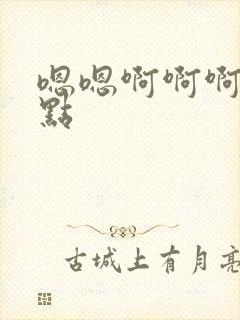 嗯嗯啊啊啊
點
古城上有月亮